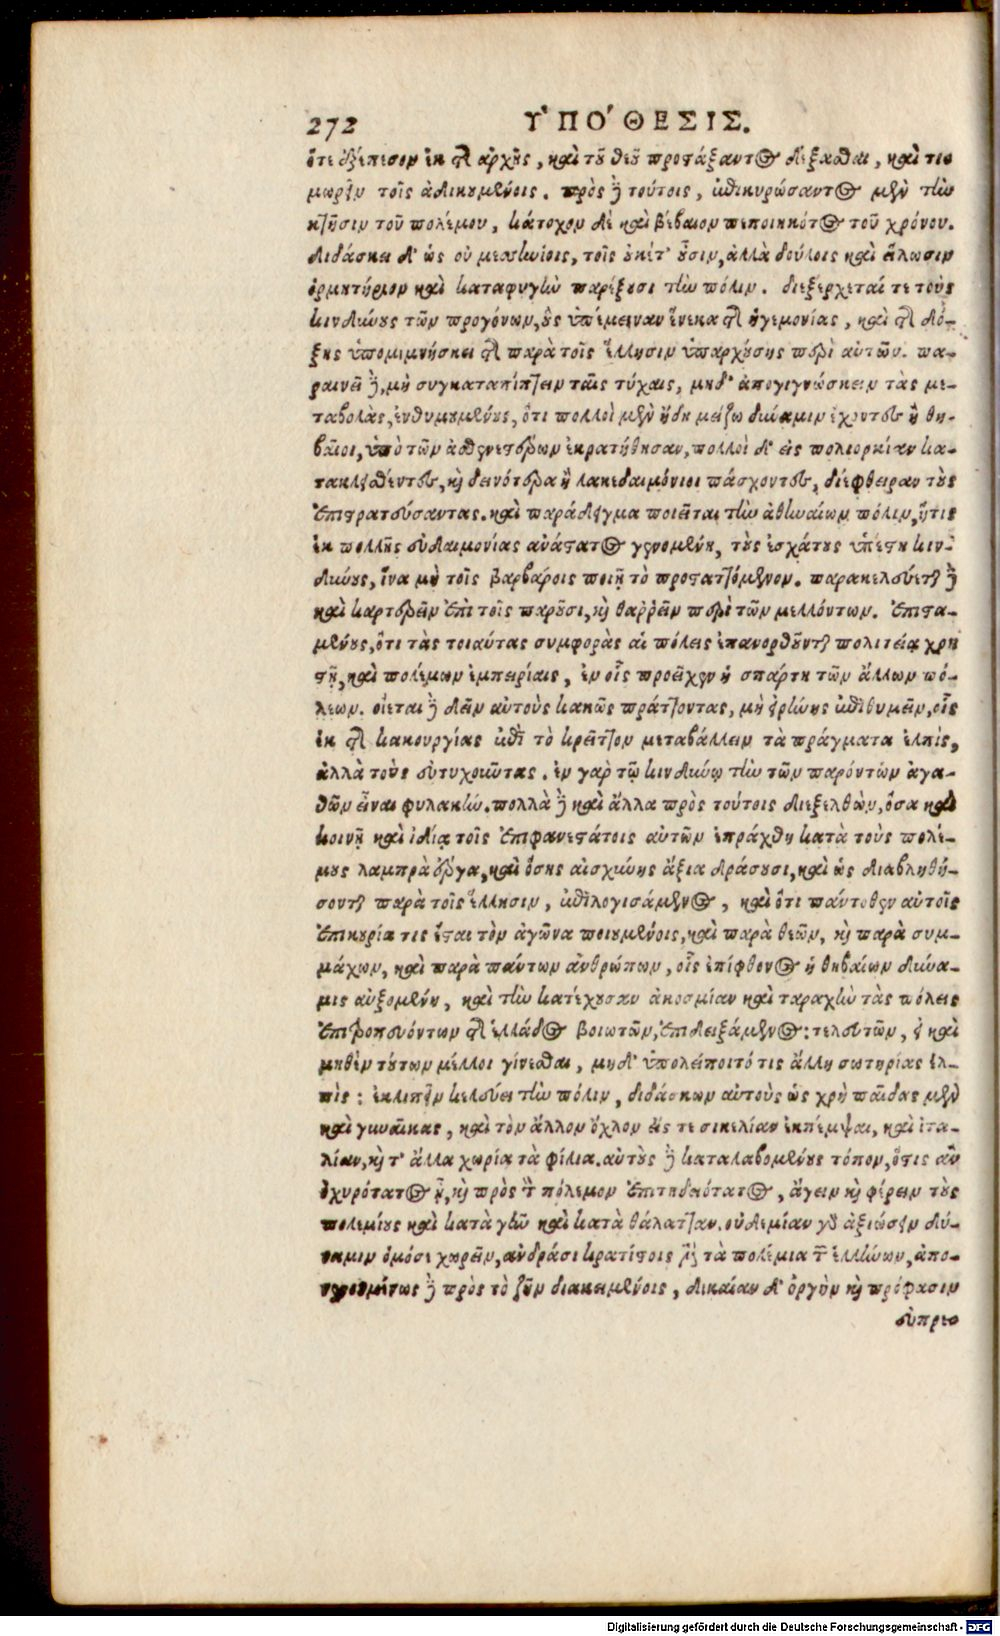 272 ΥΠΟ΄ΘΕΣΙΣ.
ὅτε ἐξέπεσον ἐκ τῆς ἀρχῆς, καὶ τοῦ θεοῦ προστάξαντος δέξασθαι, καὶ τι-
μωρεῖν τοῖς ἀδικουμένοις. πρὸς δὲ τούτοις, ἐπικυρώσαντος μὲν τὴν
κτῆσιν τοῦ πολέμου, κάτοχον δὲ καὶ βέβαιον πεποιηκότος τοῦ χρόνου.
διδάσκει δ' ὡς οὐ μεσσηνίοις, τοῖς οὐκέτ' οὖσιν, ἀλλὰ δούλοις καὶ εἵλωσιν
ὁρμητήριον καὶ καταφυγὴν παρέξουσι τὴν πόλιν. διεξέρχεταί τε τοὺς
κινδύνους τῶν προγόνων, οὓς ὑπέμειναν ἕνεκα τῆς ἡγεμονίας, καὶ τῆς δό-
ξης ὑπομιμνήσκει τῆς παρὰ τοῖς ἕλλησιν ὑπαρχούσης περὶ αὐτῶν. πα-
ραινεῖ δὲ, μὴ συγκαταπίπτειν ταῖς τύχαις, μηδ' ἀπογιγνώσκειν τὰς με-
ταβολὰς, ἐνθυμουμένους, ὅτι πολλοὶ μὲν ἤδη μείζω δύναμιν ἔχοντες ἢ θη-
βαῖοι, ὑπὸ τῶν ἀσθενεστέρων ἐκρατήθησαν, πολλοὶ δ' εἰς πολιορκίαν κα-
τακλεισθέντες, καὶ δεινότερα ἢ λακεδαιμόνιοι πάσχοντες, διέφθειραν τοὺς
ἐπιστρατεύσαντας. καὶ παράδειγμα ποιεῖται τὴν ἀθηναίων πόλιν, ἥτις
ἐκ πολλῆς εὐδαιμονίας ἀνάστατος γενομένη, τοὺς ἐσχάτους ὑπέστη κιν-
δύνους, ἵνα μὴ τοῖς βαρβάροις ποιῇ τὸ προσταττόμενον. παρακελεύεται δὲ
καὶ καρτερεῖν ἐπὶ τοῖς παροῦσι, καὶ θαρρεῖν περὶ τῶν μελλόντων. ἐπιστα-
μένους, ὅτι τὰς τοιαύτας συμφορὰς αἱ πόλεις ἐπανορθοῦνται πολιτείᾳ χρη
στῇ, καὶ πολέμων ἐμπειρίαις, ἐν οἷς προεῖχεν ἡ σπάρτη τῶν ἄλλων πό-
λεων. οἴεται δὲ δεῖν αὐτοὺς κακῶς πράττοντας, μὴ εἰρήνης ἐπιθυμεῖν, οἷς
ἐκ τῆς κακουργίας ἐπὶ τὸ κρεῖττον μεταβάλλειν τὰ πράγματα ἐλπὶς,
ἀλλὰ τοὺς εὐτυχοῦντας. ἐν γὰρ τῷ κινδύνῳ τὴν τῶν παρόντων ἀγα-
θῶν εἶναι φυλακήν. πολλὰ δὲ καὶ ἄλλα πρὸς τούτοις διεξελθὼν, ὅσα καὶ
κοινῇ καὶ ἰδίᾳ τοῖς ἐπιφανεστάτοις αὐτῶν ἐπράχθη κατὰ τοὺς πολέ-
μους λαμπρὰ ἔργα, καὶ ὅσης αἰσχύνης ἄξια δράσουσι, καὶ ὡς διαβληθή-
σονται παρὰ τοῖς ἕλλησιν, ἐπιλογισάμενος, καὶ ὅτι πάντοθεν αὐτοῖς
ἐπικουρία τις ἔσται τὸν ἀγῶνα ποιουμένοις, καὶ παρὰ θεῶν, καὶ παρὰ συμ-
μάχων, καὶ παρὰ πάντων ἀνθρώπων, οἷς ἐπίφθονος ἡ θηβαίων δύνα-
μις αὐξομένη, καὶ τὴν κατέχουσαν ἀκοσμίαν καὶ ταραχὴν τὰς πόλεις
ἐπιτροπευόντων τῆς ἑλλάδος βοιωτῶν, ἐπιδειξάμενος: τελευτῶν, εἰ καὶ
μηθὲν τούτων μέλλοι γίνεσθαι, μηδ' ὑπολείποιτό τις ἄλλη σωτηρίας ἐλ-
πὶς: ἐκλιπεῖν κελεύει τὴν πόλιν, διδάσκων αὐτοὺς ὡς χρὴ παῖδας μὲν
καὶ γυναῖκας, καὶ τὸν ἄλλον ὄχλον εἴς τε σικελίαν ἐκπέμψαι, καὶ ἰτα-
λίαν, καὶ τ' ἄλλα χωρία τὰ φίλια. αὐτοὺς δὲ καταλαβομένους τόπον, ὅστις ἂν
ὀχυρότατος ᾖ, καὶ πρὸς τὸν πόλεμον ἐπιτηδειότατος, ἄγειν καὶ φέρειν τοὺς
πολεμίους καὶ κατὰ γῆν καὶ κατὰ θάλατταν. οὐδεμίαν γὰρ ἀξιώσειν δύ-
ναμιν ὁμόσε χωρεῖν, ἀνδράσι κρατίστοις εἰς τὰ πολέμια τῶν ἑλλήνων, ἀπο-
νενοημένως δὲ πρὸς τὸ ζῆν διακειμένοις, δικαίαν δ' ὀργὴν καὶ πρόφασιν
εὐπρε-
Digitalisierung gefördert durch die Deutsche Forschungsgemeinschaft - DFG